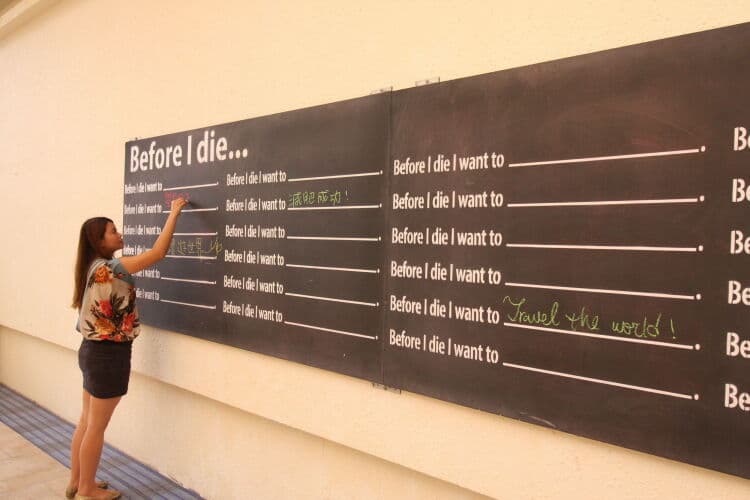 Before I die...
Before I die I want to
Before I die I want to
Before I die I want to
Before I die I want to 遊世界
die I want to
die I want to
Before I die I want to
Before I die I want to 減肥成功!
Before I die I want to
Before I die I want to
Before I die I want to
Before I die I want to
Before I die I want to
Before I die I want to
Before I die I want to
Before I die I want to
Before I die I want to Travel the world!
Before I die I want to
B
B
Be
Be
Be
Be